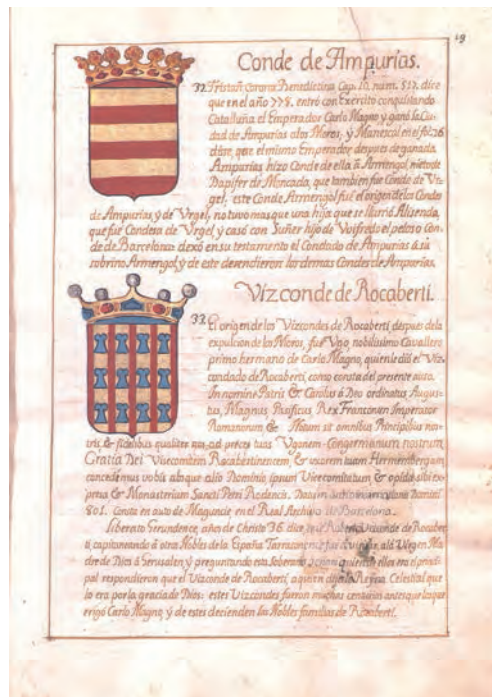 19
Conde de Ampurias.
32. Tristañ Corona Benedictina Cap. 10. num. 517. dice
que en el año 778. entró con Exercito conquistando
Cataluña el Emperador Carlo Magno y ganó la Ciu-
dad de Ampurias a los Moros; y Manescal en el fol. 26
dice, que el mismo Emperador despues de ganada
Ampurias hizo Conde de ella à Armengol, nieto de
Dapifer de Moncada, que tambien fue Conde de Ur-
gel; este Conde Armengol fué el origen de los Condes
de Ampurias, y de Urgel, no tuvo mas que una hija que se llamó Alisenda,
que fué Condesa de Urgel, y casó con Suñer hijo de Voifredo el peloso Con-
de de Barcelona: dexó en su testamento el Condado de Ampurias à su
sobrino Armengol, y de este decendieron los demas Condes de Ampurias.
Vizconde de Rocaberti.
33. El origen de los Vizcondes de Rocaberti, despues de la
expulcion de los Moros, fué Ugo, nobilissimo Cavallero
primo hermano de Carlo Magno, quien le dió el Viz-
condado de Rocaberti, como consta del presente auto.
In nomine Patris &. Carolus à Deo ordinatus Augus-
tus, Magnus, Pacificus, Rex Francorum Imperator
Romanorum, &. Notum sit omnibus Principibus nos-
tris, & fidelibus qualiter nos ad preces tuas Ugonem Congermanum nostrum,
Gratia Dei Vicecomitem Rocabertinensem, & uxorem tuam Hermembergam
concedemus vobis absque alio Dominio ipsum Vicecomitatum & opida sibi ex-
presa & Monasterium Sancti Petri Rodencis. Datum
801. Consta en auto de Maguncie, en el Real Archivo de Barcelona.
Liberato Gerundence, años de Christo 36. dice, que Roberto Vizconde de Rocaber-
ti, capitaneando à otros Nobles de la España Tarraconense fué à visitar, a la Virgen Ma-
dre de Dios à Gerusalen, y preguntando esta Soberana Señora quien de ellos era el princi-
pal respondieron que el Vizconde de Rocaberti, a quien dijo la Reyna Celestial que
lo era por la gracia de Dios: estos Vizcondes fueron muchas centurias antes que los que
erigó Carlo Magno, y de estos decienden las Nobles familias de Rocaberti.